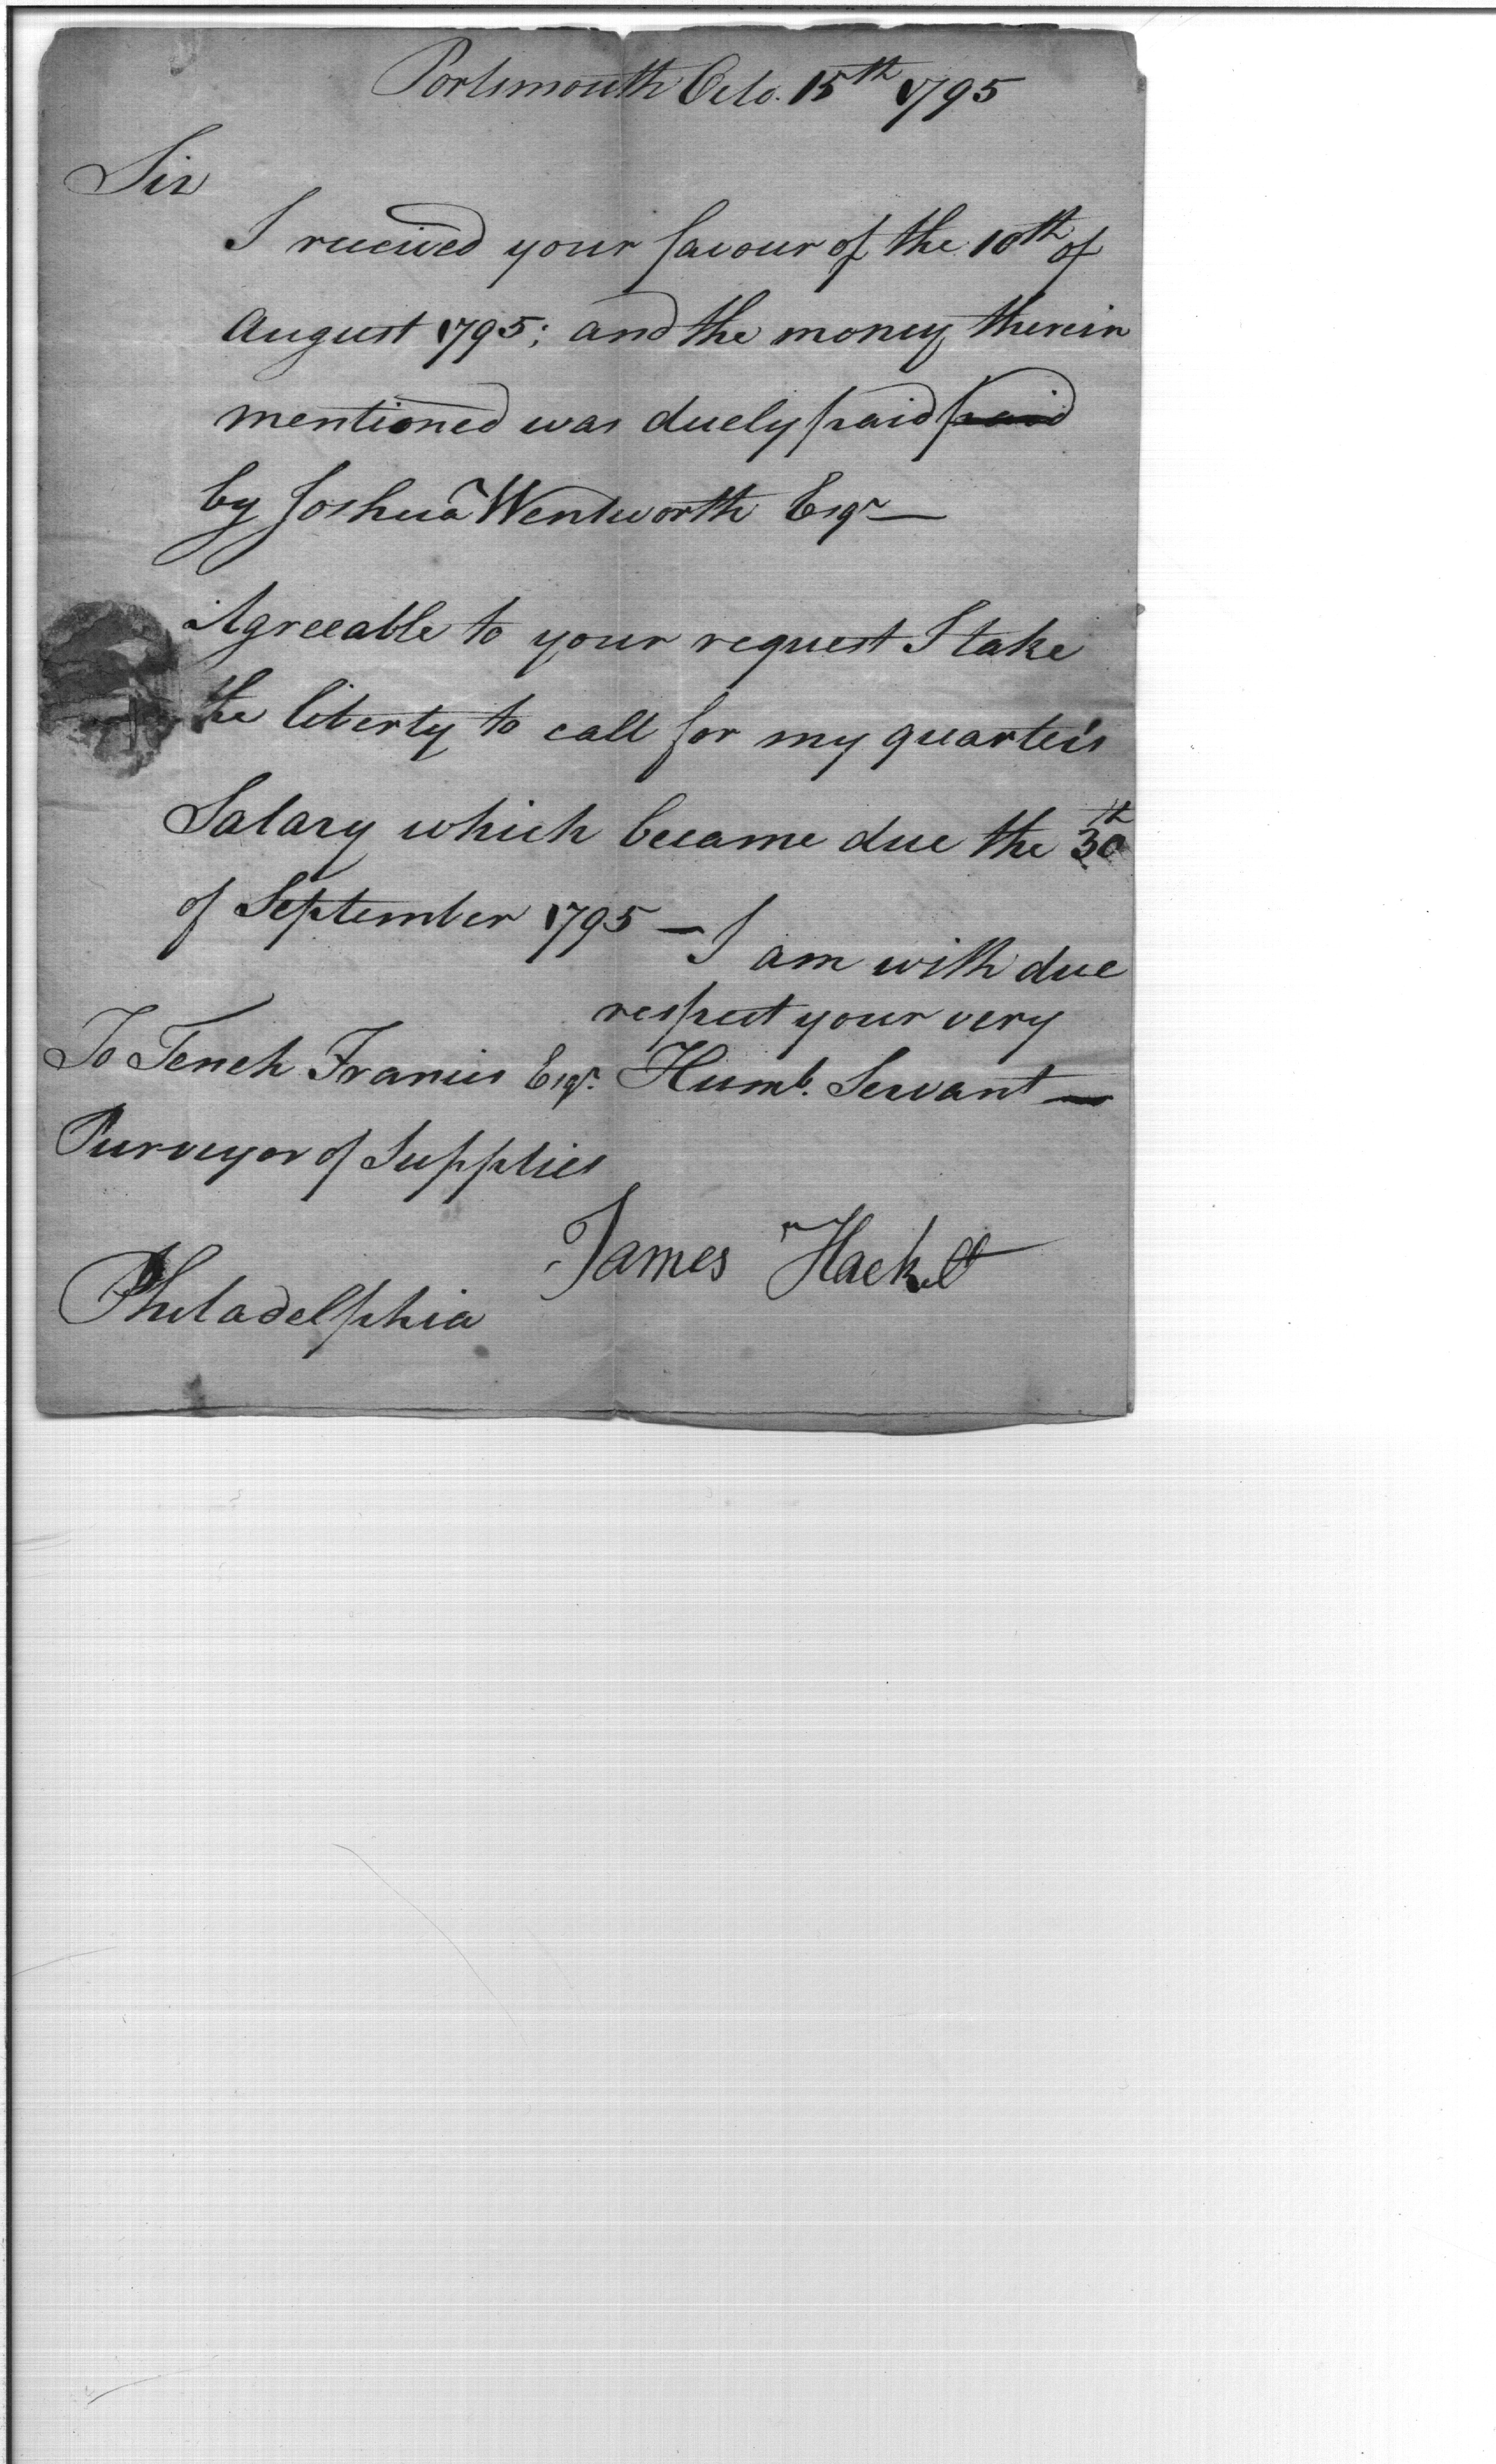 Portsmouth Octo. 15th 1795
Sir
I received your favour of the 10th of
August 1795; and the money therein
mentioned was duely paid paid
by Joshua Wentworth Esqr —
Agreeable to your request I take
the liberty to call for my quarter's
Salary which became due the 30th
of September 1795 — I am with due
respect your very
Humb. Servant —
To Tench Francis Esqr.
Purveyor of Supplies
James Hacket
Philadelphia